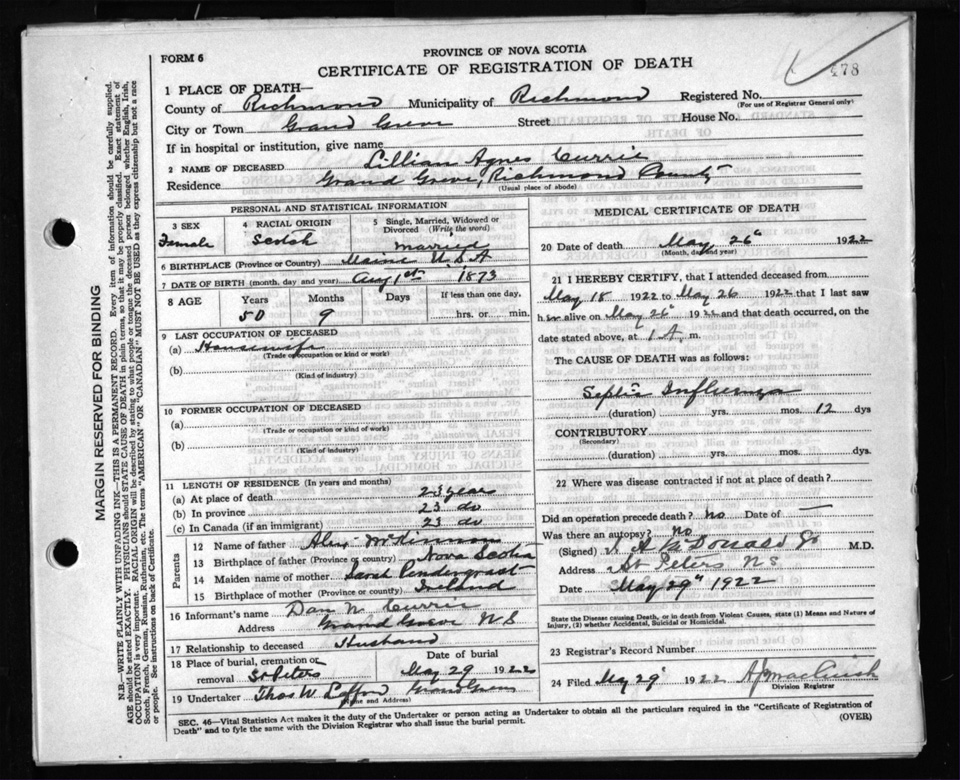 FORM 6
PROVINCE OF NOVA SCOTIA
CERTIFICATE OF REGISTRATION OF DEATH
478
1 PLACE OF DEATH—
County of Richmond Municipality of Richmond Registered No.
(For use of Registrar General only)
City or Town Grand Greve Street House No.
If in hospital or institution, give name
2 NAME OF DECEASED Lillian Agnes Currie
Residence Grand Greve, Richmond County
(Usual place of abode)
PERSONAL AND STATISTICAL INFORMATION
3 SEX
Female
4 RACIAL ORIGIN
Scotch
5 Single, Married, Widowed or Divorced (Write the word)
married
6 BIRTHPLACE (Province or Country) Maine U.S.A
7 DATE OF BIRTH (month, day and year) Aug 1st 1873
8 AGE Years Months Days If less than one day,
50 9 hrs. or min.
9 LAST OCCUPATION OF DECEASED
(a) Housewife
(Trade or occupation or kind or work)
(b)
(Kind of industry)
10 FORMER OCCUPATION OF DECEASED
(a)
(Trade or occupation or kind of work)
(b)
(Kind of industry)
11 LENGTH OF RESIDENCE (In years and months)
(a) At place of death 23 year
(b) In province 23 do
(c) In Canada (if an immigrant) 23 do
Parents
12 Name of father Alex McKinnon
13 Birthplace of father (Province or country) Nova Scotia
14 Maiden name of mother Sarah Pendergrast
15 Birthplace of mother (Province or county) Ireland
16 Informant's name Dan N. Currie
Address Grand Greve N.S
17 Relationship to deceased Husband
18 Place of burial, cremation or removal St Peters
Date of burial
May 29 1922
19 Undertaker Thos W. Grand Greve
(Name and Address)
MEDICAL CERTIFICATE OF DEATH
20 Date of death May 26th 1922
(Month, day and year)
21 I HEREBY CERTIFY, that I attended deceased from
May 18 1922 to May 26 1922 that I last saw
her alive on May 26th 1922 and that death occurred, on the
date stated above, at 1 A. m.
The CAUSE OF DEATH was as follows:
Septic Influenza
(duration) yrs. mos. 12 dys
CONTRIBUTORY
(Secondary)
(duration) yrs. mos. dys.
22 Where was disease contracted if not at place of death?
Did an operation precede death? no Date of —
Was there an autopsy? No
(Signed) M.D.
Address St Peters N.S
Date May 29th 1922
State the Disease causing Death, or in death from Violent Causes, state (1) Means and Nature of
Injury, (2) whether Accidental, Suicidal or Homicidal.
23 Registrar's Record Number
24 Filed May 29 1922
Division Registrar
SEC. 46—Vital Statistics Act makes it the duty of the Undertaker or person acting as Undertaker to obtain all the particulars required in the "Certificate of Registration of
Death" and to fyle the same with the Division Registrar who shall issue the burial permit.
(OVER)
MARGIN RESERVED FOR BINDING
N.B.—WRITE PLAINLY WITH UNFADING INK—THIS IS A PERMANENT RECORD. Every item of information should be carefully supplied.
AGE should be stated EXACTLY. PHYSICIANS should STATE CAUSE OF DEATH in plain terms, so that it may be properly classified. Exact statement of
OCCUPATION is very important. RACIAL ORIGIN will be described by stating to what people or tongue the deceased person belonged whether English, Irish,
Scotch, French, German, Russian, Ruthenian, etc. The terms "AMERICAN" OR "CANADIAN" MUST NOT BE USED as they express citizenship but not a race
or people. See instructions on back of Certificate.